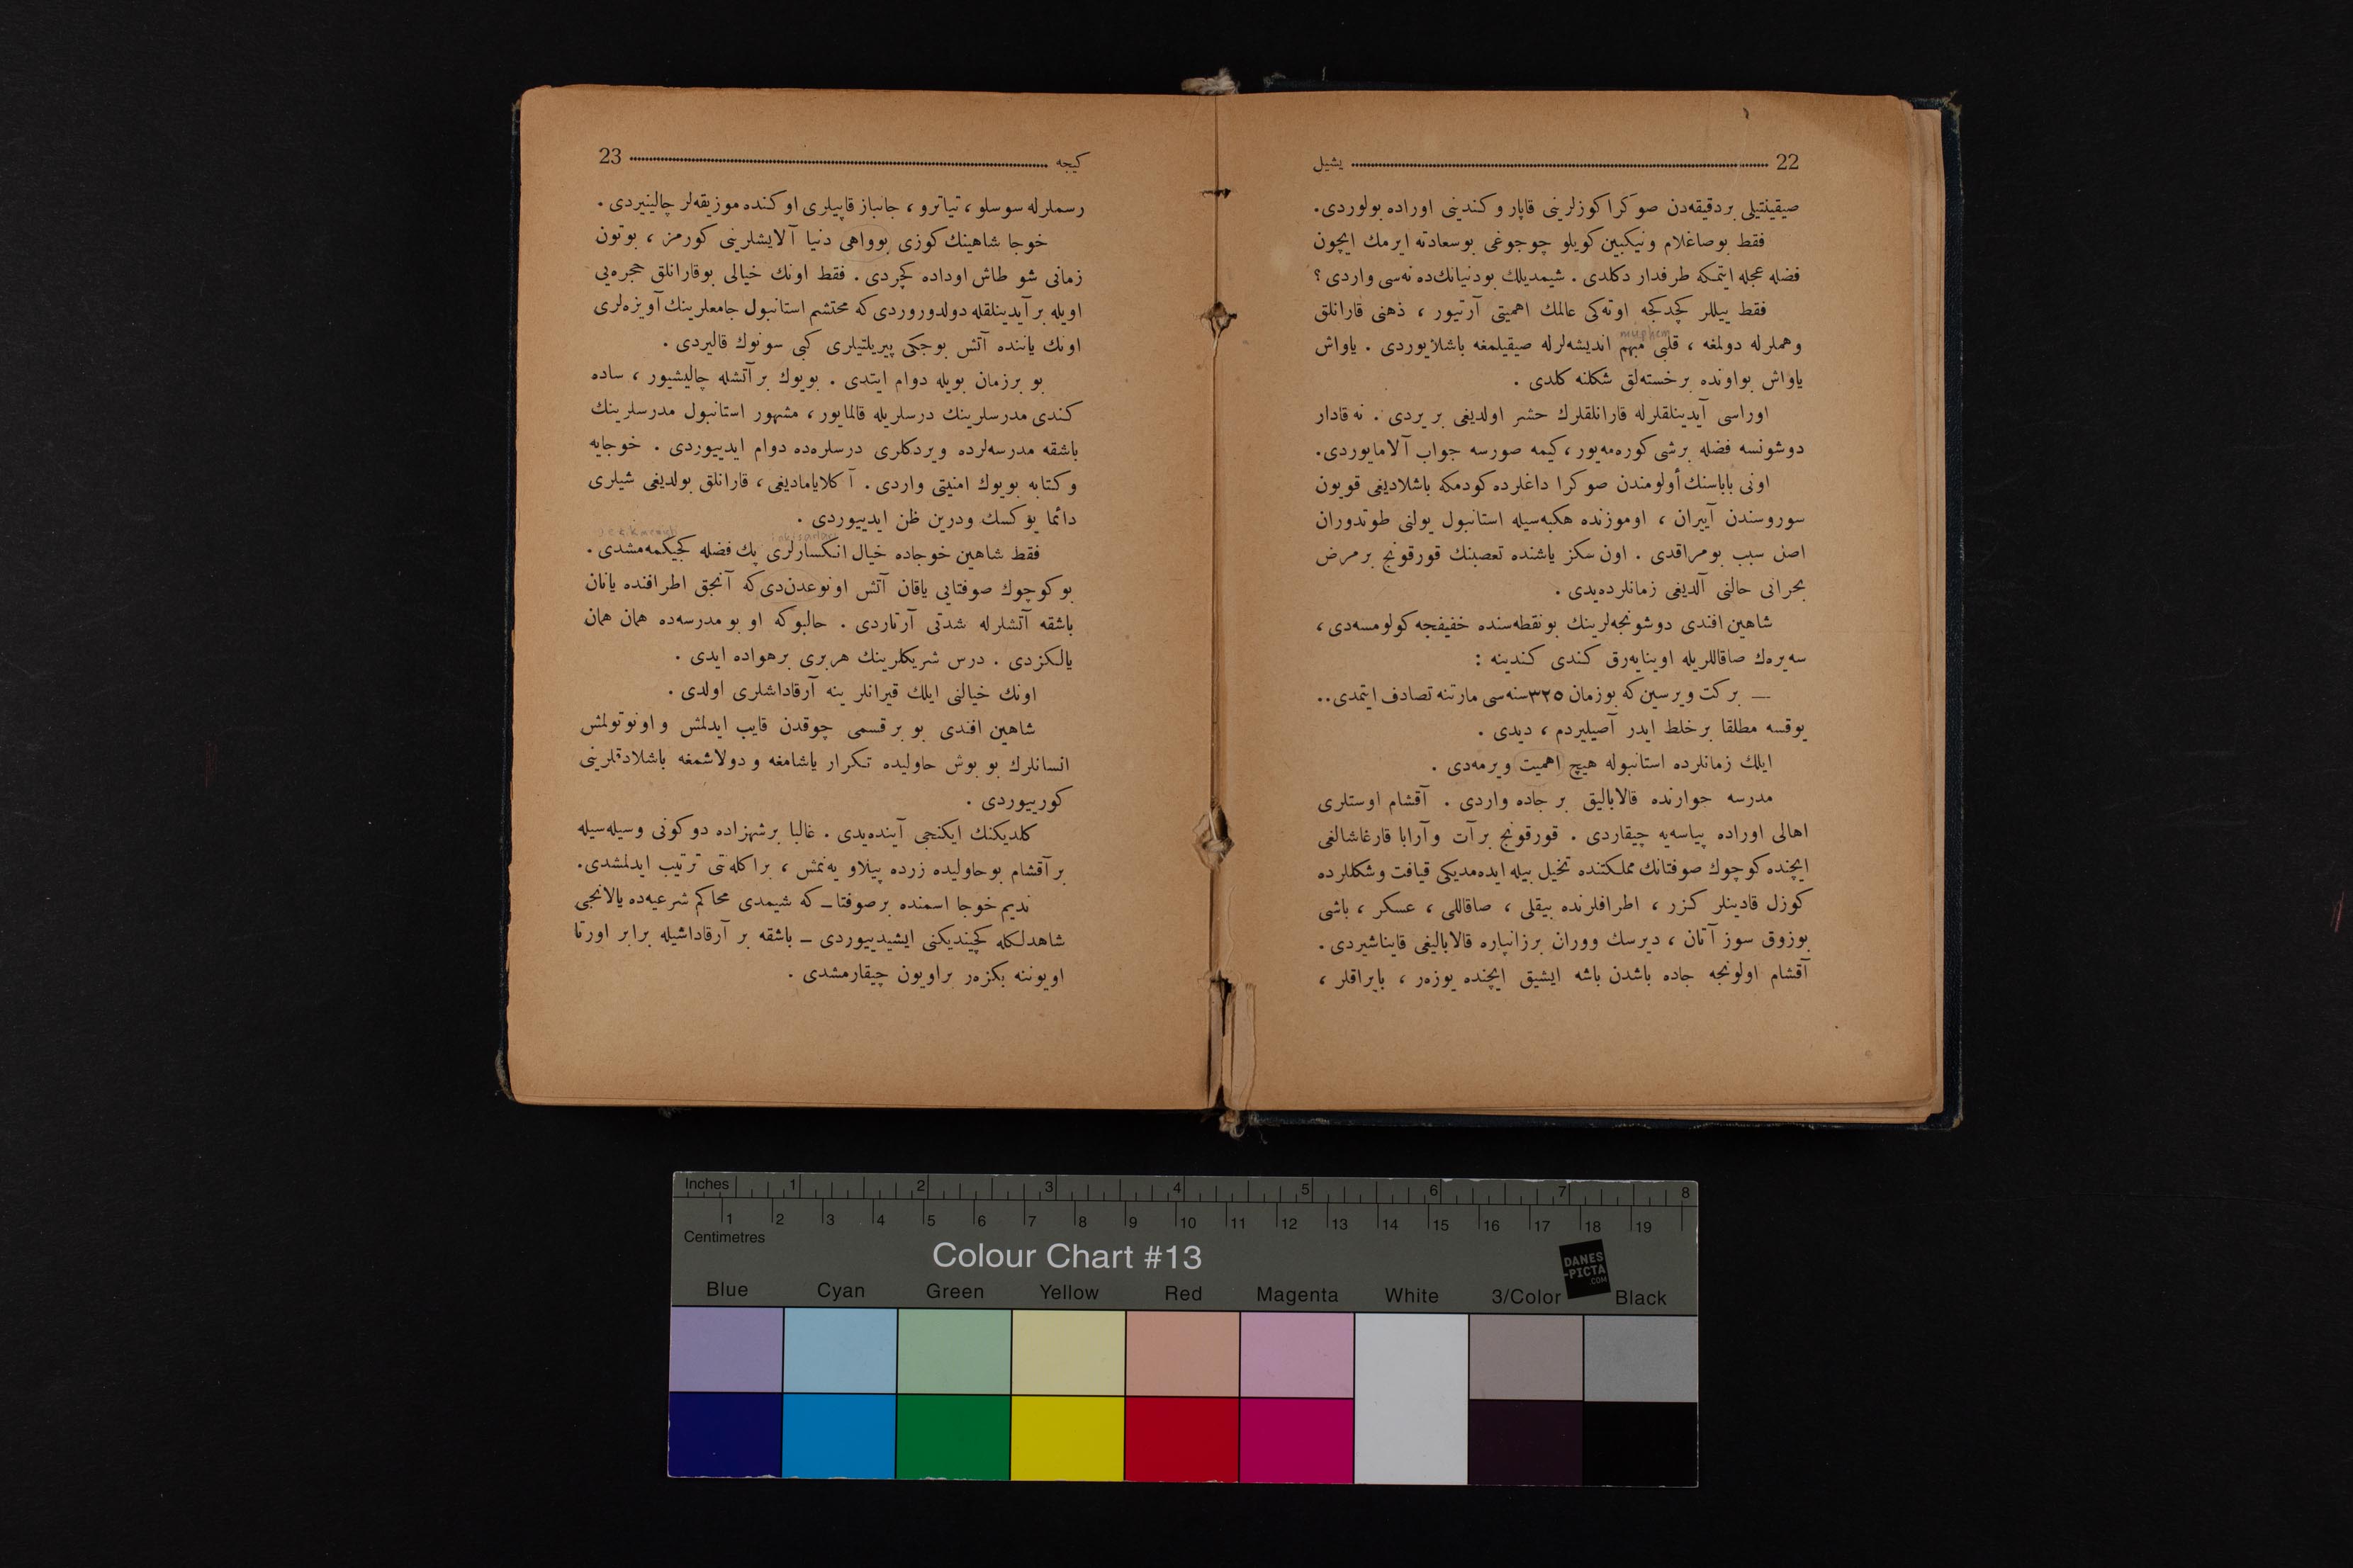 22 يشيل
صيقينتيلى بردقيقه‌دن صوكرا كوزلرينى قاپار وكندينى اوراده بولوردى.
فقط بوصاغلام ونيكبين كويلو چوجوغى بوسعادته ايرمك ايچون
فضله عجله ايتمكه طرفدار دكلدى . شيمديلك بودنيانك‌ده نه‌سى واردى ؟
فقط ييللر كچدكجه اوته‌كى عالمك اهميتى آرتيور ، ذهنى قارانلق
müphem
وهملرله دولمغه ، قلبى مبهم انديشه‌لرله صيقيلمغه باشلايوردى . ياواش
ياواش بواونده برخسته‌لق شكلنه كلدى .
اوراسى آيدينلقلرله قارانلقلرك حشر اولديغى بر يردى . نه قادار
دوشونسه فضله برشى كوره‌مه‌يور ، كيمه صورسه جواب آلامايوردى.
اونى باباسنك أولومندن صوكرا داغلرده كودمكه باشلاديغى قويون
سوروسندن آييران ، اوموزنده هكبه‌سيله استانبول يولنى طوتدوران
اصل سبب بومراقدى . اون سكز ياشنده تعصبنك قورقونج برمرض
بحرانى حالنى آلديغى زمانلرده‌يدى .
شاهين افندى دوشونجه‌لرينك بونقطه‌سنده خفيفجه كولومسه‌دى ،
سه‌يره‌ك صاقاللريله اوينايه‌رق كندى كندينه :
— بركت ويرسين كه بوزمان ٣٢٥سنه‌سى مارتنه تصادف ايتمدى..
يوقسه مطلقا برخلط ايدر آصيليردم ، ديدى .
ايلك زمانلرده استانبوله هيچ اهميت ويرمه‌دى .
مدرسه جوارنده قالاباليق بر جاده واردى . آقشام اوستلرى
اهالى اوراده پياسه‌يه چيقاردى . قورقونج برآت وآرابا قارغاشالغى
ايچنده كوچوك صوفتانك مملكتنده تخيل بيله ايده‌مديكى قيافت وشكللرده
كوزل قادينلر كزر ، اطرافلرنده بيقلى ، صاقاللى ، عسكر ، باشى
بوزوق سوز آتان ، ديرسك ووران برزانپاره قالاباليغى قايناشيردى .
آقشام اولونجه جاده باشدن باشه ايشيق ايچنده يوزه‌ر ، بايراقلر ،
كيجه 23
رسملرله سوسلو ، تياترو ، جانباز قاپيلرى اوكنده موزيقه‌لر چالينيردى .
خوجا شاهينك كوزى بوواهى دنيا آلايشلرينى كورمز ، بوتون
زمانى شو طاش اوداده كچردى . فقط اونك خيالى بوقارانلق حجره‌يى
اويله بر آيدينلقله دولدوروردى كه محتشم استانبول جامعلرينك آويزه‌لرى
اونك ياننده آتش بوجكى پيريلتيلرى كبى سونوك قاليردى .
بو برزمان بويله دوام ايتدى . بويوك برآتشله چاليشيور ، ساده
كندى مدرسلرينك درسلريله قالمايور ، مشهور استانبول مدرسلرينك
باشقه مدرسه‌لرده ويردكلرى درسلره‌ده دوام ايدييوردى . خوجايه
وكتابه بويوك امنيتى واردى . آكلاياماديغى ، قارانلق بولديغى شيلرى
دائما يوكسك ودرين ظن ايدييوردى .
فقط شاهين خوجاده خيال انكسارلرى پك فضله كجيكمه‌مشدى .
بو كوچوك صوفتايى ياقان آتش اونوعدن‌دى كه آنجق اطرافنده يانان
باشقه آتشلرله شدتى آرتاردى . حالبوكه او بو مدرسه‌ده همان همان
يالكزدى . درس شريكلرينك هربرى برهواده ايدى .
اونك خيالنى ايلك قيرانلر ينه آرقاداشلرى اولدى .
شاهين افندى بو بر قسمى چوقدن قايب ايدلمش و اونوتولمش
انسانلرك بو بوش حاوليده تكرار ياشامغه و دولاشمغه باشلادقلرينى
كورييوردى .
كلديكنك ايكنجى آينده‌يدى . غالبا برشهزاده دوكونى وسيله‌سيله
بر آقشام بوحاوليده زرده پيلاو يه‌نمش ، براكله‌نتى ترتيب ايدلمشدى.
نديم خوجا اسمنده برصوفتا ـ كه شيمدى محاكم شرعيه‌ده يالانجى
شاهدلكله كچينديكنى ايشيدييوردى ـ باشقه بر آرقاداشيله برابر اورتا
اويوننه بكزه‌ر براويون چيقارمشدى .
Inches 1 2 3 4 5 6 7 8
1 2 3 4 5 6 7 8 9 10 11 12 13 14 15 16 17 18 19
Centimetres
Colour Chart #13
DANES
-PICTA
.COM
Blue Cyan Green Yellow Red Magenta White 3/Color Black